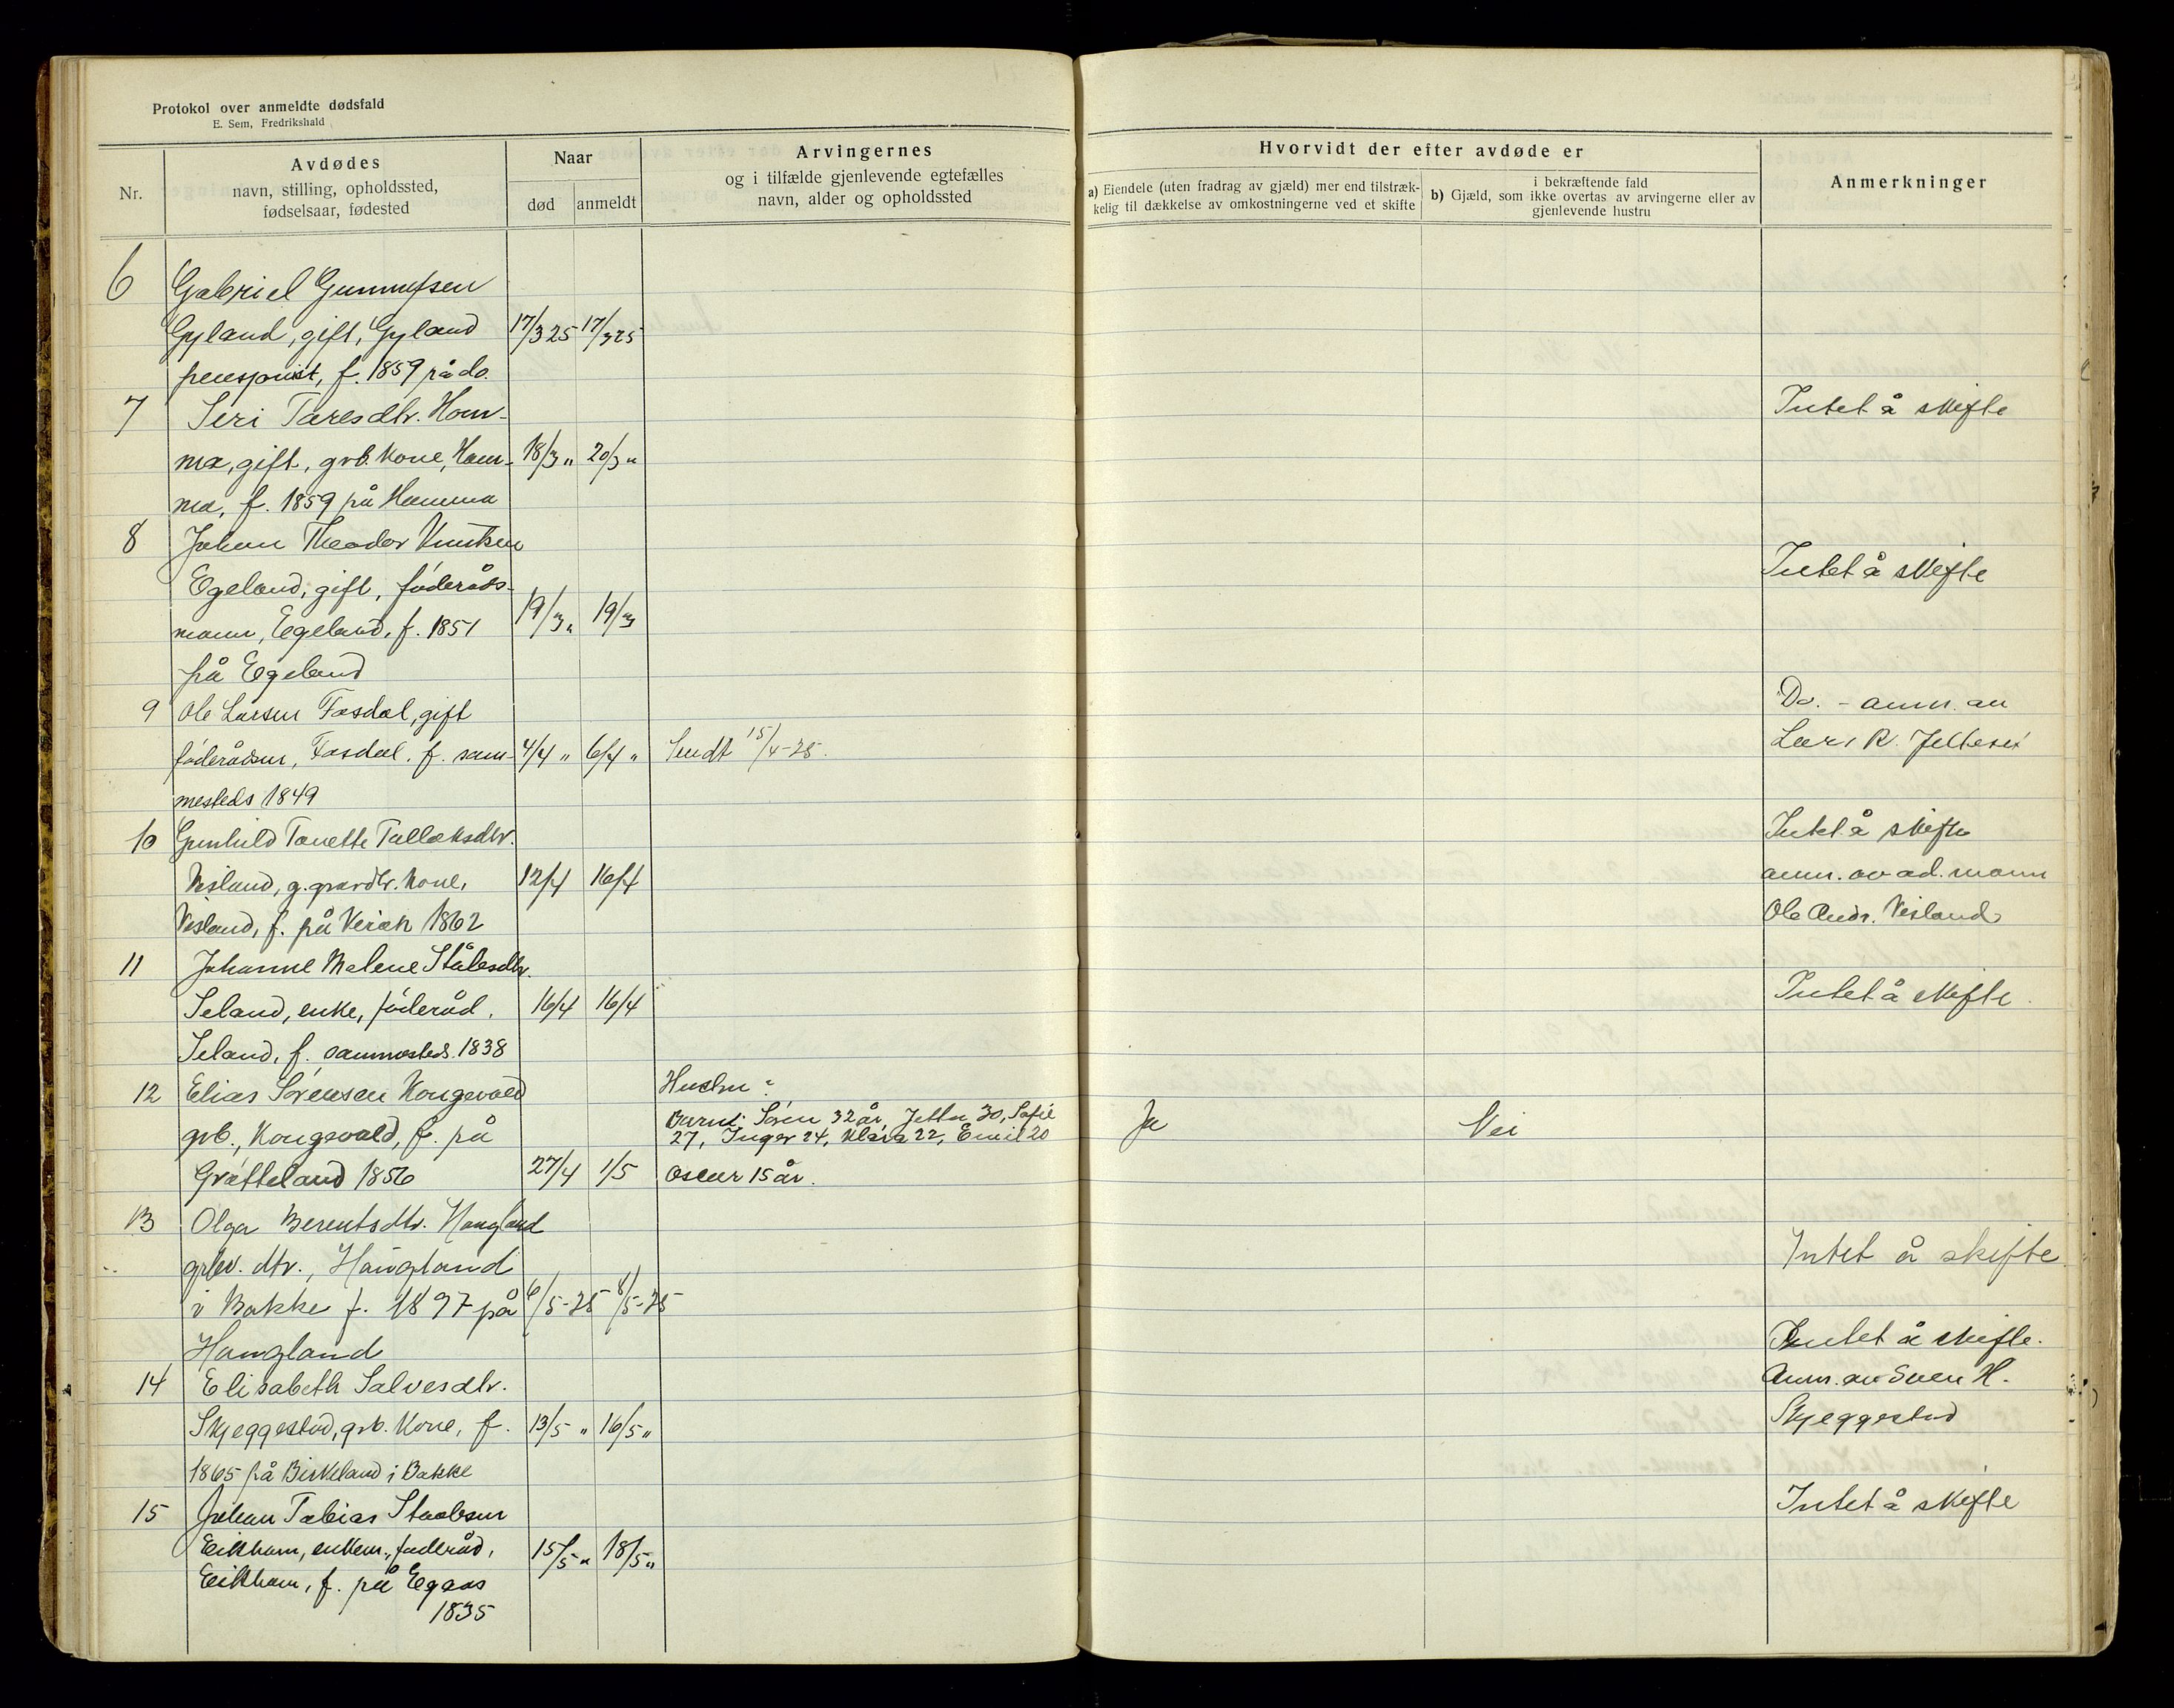 Protokol over anmeldte dødsfald
E. Sem, Fredrikshald
Nr.
Avdødes
navn, stilling, opholdssted,
fødselsaar, fødested
Naar
død
anmeldt
Arvingernes
og i tilfælde gjenlevende egtefælles
navn, alder og opholdssted
Hvorvidt der efter avdøde er
a) Eiendele (uten fradrag av gjæld) mer end tilstræk-
kelig til dækkelse av omkostningerne ved et skifte
i bekræftende fald
b) Gjæld, som ikke overtas av arvingerne eller av
gjenlevende hustru
Anmerkninger
6 Gabriel Gunnufsen
Gyland, gift, Gyland 17/3 25 17/3 25
f. 1859 på do.
7 Siri Taresdtr. Hom- Intet å skifte
ma, gift, grb. kone, Hom- 18/3 " 20/3 "
ma, f. 1859 på Homma
8 Johan Theodor Knutsen
Egeland, gift, føderåds- Intet å skifte
mann, Egeland, f. 1851 19/3 " 19/3
på Egeland
9 Ole Larsen Fosdal, gift Do. - anm. av
føderådsm, Fosdal. f. sam- 4/4 " 6/4 " Sendt 15/4-25. Lars R.
mesteds 1849
10 Gunhild Tonette Tallaksdtr. Intet å skifte
Visland, g. grdr. kone, 12/4 16/4 anm. av ad. mann
Visland, f. på 1862 Ole Andr. Visland
11 Johanne Malene Ståbsdtr.
Seland, enke, føderåd, 16/4 16/4 Intet å skifte.
Seland, f. sammesteds. 1838
12 Elias Sørensen Kongevold Hustru:
grb., Kongevold, f. på Barn: Søren 32 år, 30, Sofie Ja Nei
27, Inger 24, Klara 22, Emil 20
Grøtteland 1856 27/4 1/5 Oscar 15 år.
13 Olga Berentsdtr. Haugland
grbr. dtr., Haugland Intet å skifte
i Bakke f. 1897 på 6/5-25 8/5-25
Haugland Intet å skifte.
14 Elisabeth Salvesdtr. Anm. av Sven H.
Skjeggestad, grb. kone, f. 13/5 " 16/5 " Skjeggestad
1865 på Birkeland i Bakke
15 Johan Tobias Staalesen Intet å skifte
Eikham, enkem., føderåd, 15/5 " 18/5 "
Eikham, f. på Egaas
1835